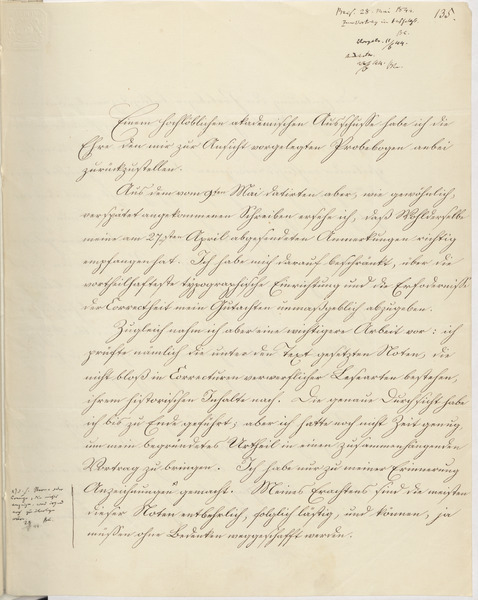 135.
Einem hochlöblichen akademischen Ausschusse habe ich die
Ehre den mir zur Ansicht vorgelegten Probebogen anbei
zurückzustellen.
Aus dem vom 9ten Mai datirten aber, wie gewöhnlich,
verspätet angekommenen Schreiben ersehe ich, daß Wohlderselbe
meine am 27sten April abgesendeten Anmerkungen richtig
empfangen hat. Ich habe mich darauf beschränkt, über die
vortheilhafteste typographische Einrichtung und die Erfodernisse
der Correctheit mein Gutachten unmaßgeblich abzugeben.
Zugleich nahm ich aber eine wichtigere Arbeit vor: ich
prüfte nämlich die unter den Text gesetzten Noten, die
nicht bloß in Correcturen verwerflicher Lesearten bestehen,
ihrem historischen Inhalte nach. Die genaue Durchsicht habe
ich bis zu Ende geführt; aber ich hatte noch nicht Zeit genug
um mein begründetes Urtheil in einen zusammenhängenden
Vortrag zu bringen. Ich habe nur zu meiner Erinnerung
Anzeichnungen gemacht. Meines Erachtens sind die meisten
dieser Noten entbehrlich, folglich lästig, und können, ja
müssen ohne Bedenken weggeschafft werden.